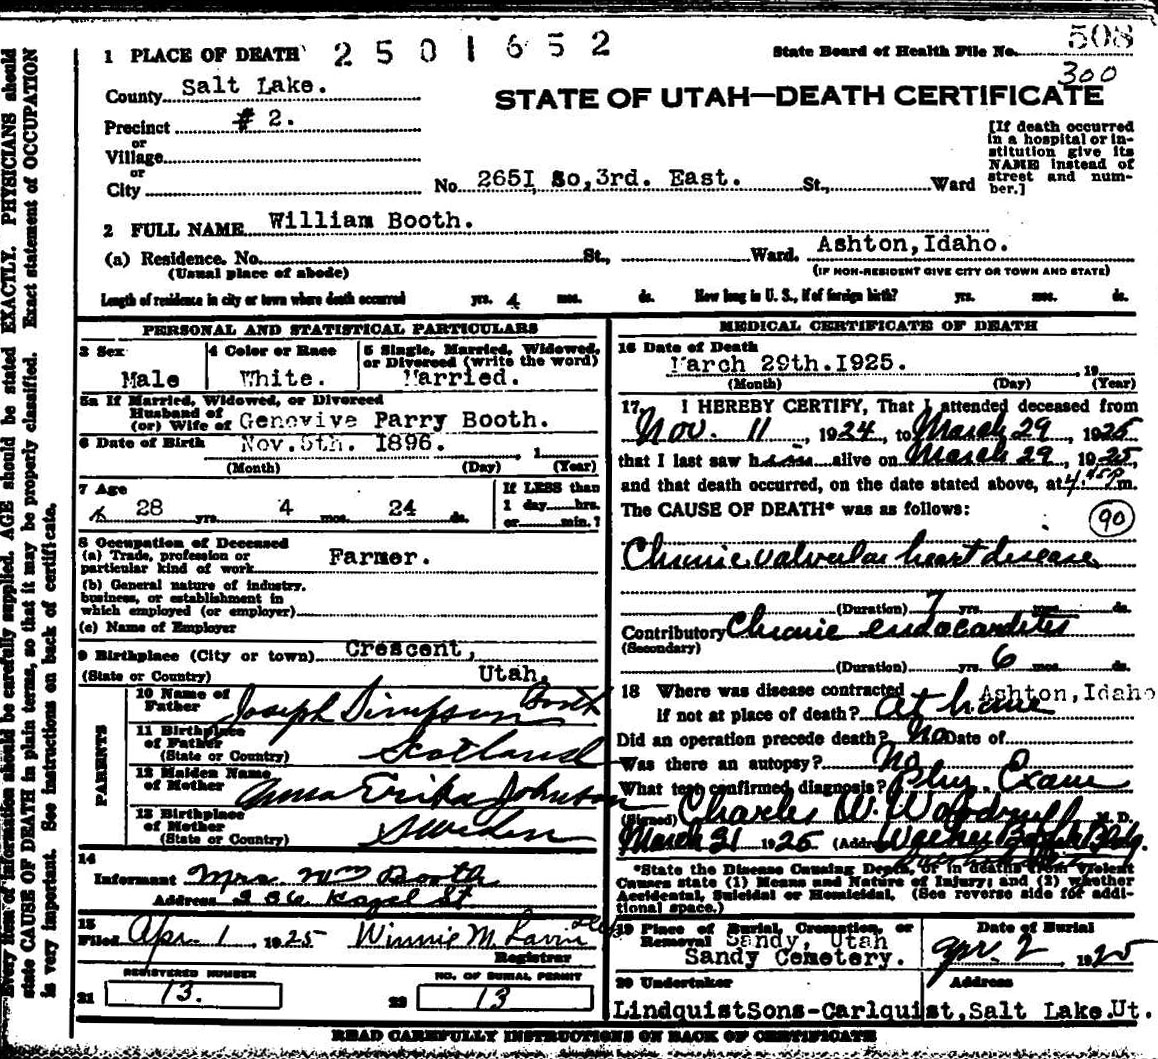 1 PLACE OF DEATH 2 5 0 1 6 5 2
State Board of Health File No. 508
300
County Salt Lake.
STATE OF UTAH—DEATH CERTIFICATE
Precinct # 2.
or
Village
or
City
No 265I So, 3rd. East. St., Ward
[If death occurred
in a hospital or in-
stitution give its
NAME instead of
street and num-
ber.]
2 FULL NAME William Booth.
(a) Residence. No. St., Ward. Ashton, Idaho.
(Usual place of abode)
(IF NON-RESIDENT GIVE CITY OR TOWN AND STATE)
Length of residence in city or town where death occurred yrs. 4 mos. ds. How long in U. S., if of foreign birth? yrs. mos. ds.
PERSONAL AND STATISTICAL PARTICULARS
3 Sex
Male
4 Color or Race
White.
5 Single, Married, Widowed,
or Divorced (write the word)
Married.
5a If Married, Widowed, or Divorced
Husband of
(or) Wife of Genovive Parry Booth.
6 Date of Birth Nov. 5th. 1896. , 1
(Month) (Day) (Year)
7 Age
28 yrs. 4 mos. 24 ds.
If LESS than
1 day hrs.
or min.?
8 Occupation of Deceased
(a) Trade, profession or
particular kind of work Farmer.
(b) General nature of industry,
business, or establishment in
which employed (or employer)
(c) Name of Employer
9 Birthplace (City or town) Crescent,
(State or Country) Utah.
PARENTS
10 Name of
Father Joseph Simpson Booth
11 Birthplace
of Father
(State or Country) Scotland
12 Maiden Name
of Mother Anna Erika Johnson
13 Birthplace
of Mother
(State or Country) Sweden
14
Informant Mrs Wm Booth
Address
15
Filed Apr. 1 , 1925 Winnie M.
Registrar
REGISTERED NUMBER
21 13.
NO. OF BURIAL PERMIT
22 13
MEDICAL CERTIFICATE OF DEATH
16 Date of Death
March 29th. I925. , 19
(Month) (Day) (Year)
17. I HEREBY CERTIFY, That I attended deceased from
Nov. 11 , 1924, to March 29 , 1925
that I last saw him alive on March 29 , 1925,
and that death occurred, on the date stated above, at 4.45P m.
The CAUSE OF DEATH* was as follows:
90
Chronic valvular heart disease
(Duration) 7 yrs. mos. ds.
Contributory Chronic endocarditis
(Secondary)
(Duration) yrs. 6 mos. ds.
18 Where was disease contracted
if not at place of death? at home Ashton, Idaho
Did an operation precede death? No Date of
Was there an autopsy? No
What test confirmed diagnosis? Phy. Exam
(Signed) Charles W. Woodruff M. D.
March 31 1925 (Address)
*State the Disease Causing Death, or in deaths from Violent
Causes state (1) Means and Nature of Injury; and (2) whether
Accidental, Suicidal or Homicidal. (See reverse side for addi-
tional space.)
19 Place of Burial, Cremation, or
Removal Sandy, Utah
Sandy Cemetery.
Date of Burial
Apr. 2 , 1925
20 Undertaker
Address
LindquistSons-Carlquist, Salt Lake Ut.
READ CAREFULLY INSTRUCTIONS ON BACK OF CERTIFICATE
Every item of information should be carefully supplied. AGE should be stated EXACTLY. PHYSICIANS should
state CAUSE OF DEATH in plain terms, so that it may be properly classified. Exact statement of OCCUPATION
is very important. See instructions on back of certificate.